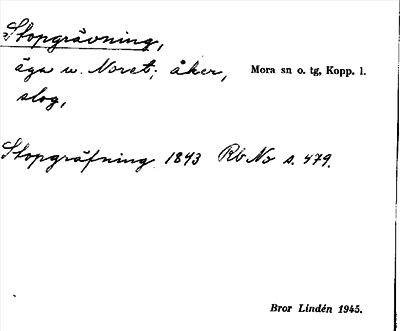 Stopgrävning,
äga u. Noret; åker, Mora sn o. tg, Kopp. l.
slog,
Stopgräfning 1843 Rb No s. 479.
Bror Lindén 1945.